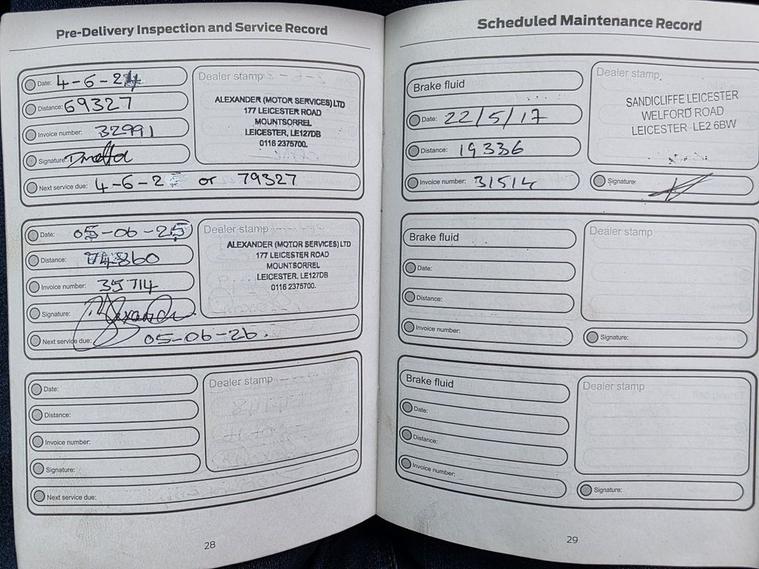 Pre-Delivery Inspection and Service Record
Date: 4-6-24
Distance: 69327
Invoice number: 32991
Signature:
Next service due: 4-6-2 or 79327
Dealer stamp
ALEXANDER (MOTOR SERVICES) LTD
177 LEICESTER ROAD
MOUNTSORREL
LEICESTER, LE127DB
0116 2375700.
Date: 05-06-25
Distance: 74860
Invoice number: 35714
Signature:
Next service due: 05-06-26.
Dealer stamp
ALEXANDER (MOTOR SERVICES) LTD
177 LEICESTER ROAD
MOUNTSORREL
LEICESTER, LE127DB
0116 2375700.
Date:
Distance:
Invoice number:
Signature:
Next service due:
Dealer stamp
28
Scheduled Maintenance Record
Brake fluid
Date: 22/5/17
Distance: 19336
Invoice number: 31514
Dealer stamp
SANDICLIFFE LEICESTER
WELFORD ROAD
LEICESTER LE2 6BW
Signature:
Brake fluid
Date:
Distance:
Invoice number:
Dealer stamp
Signature:
Brake fluid
Date:
Distance:
Invoice number:
Dealer stamp
Signature:
29